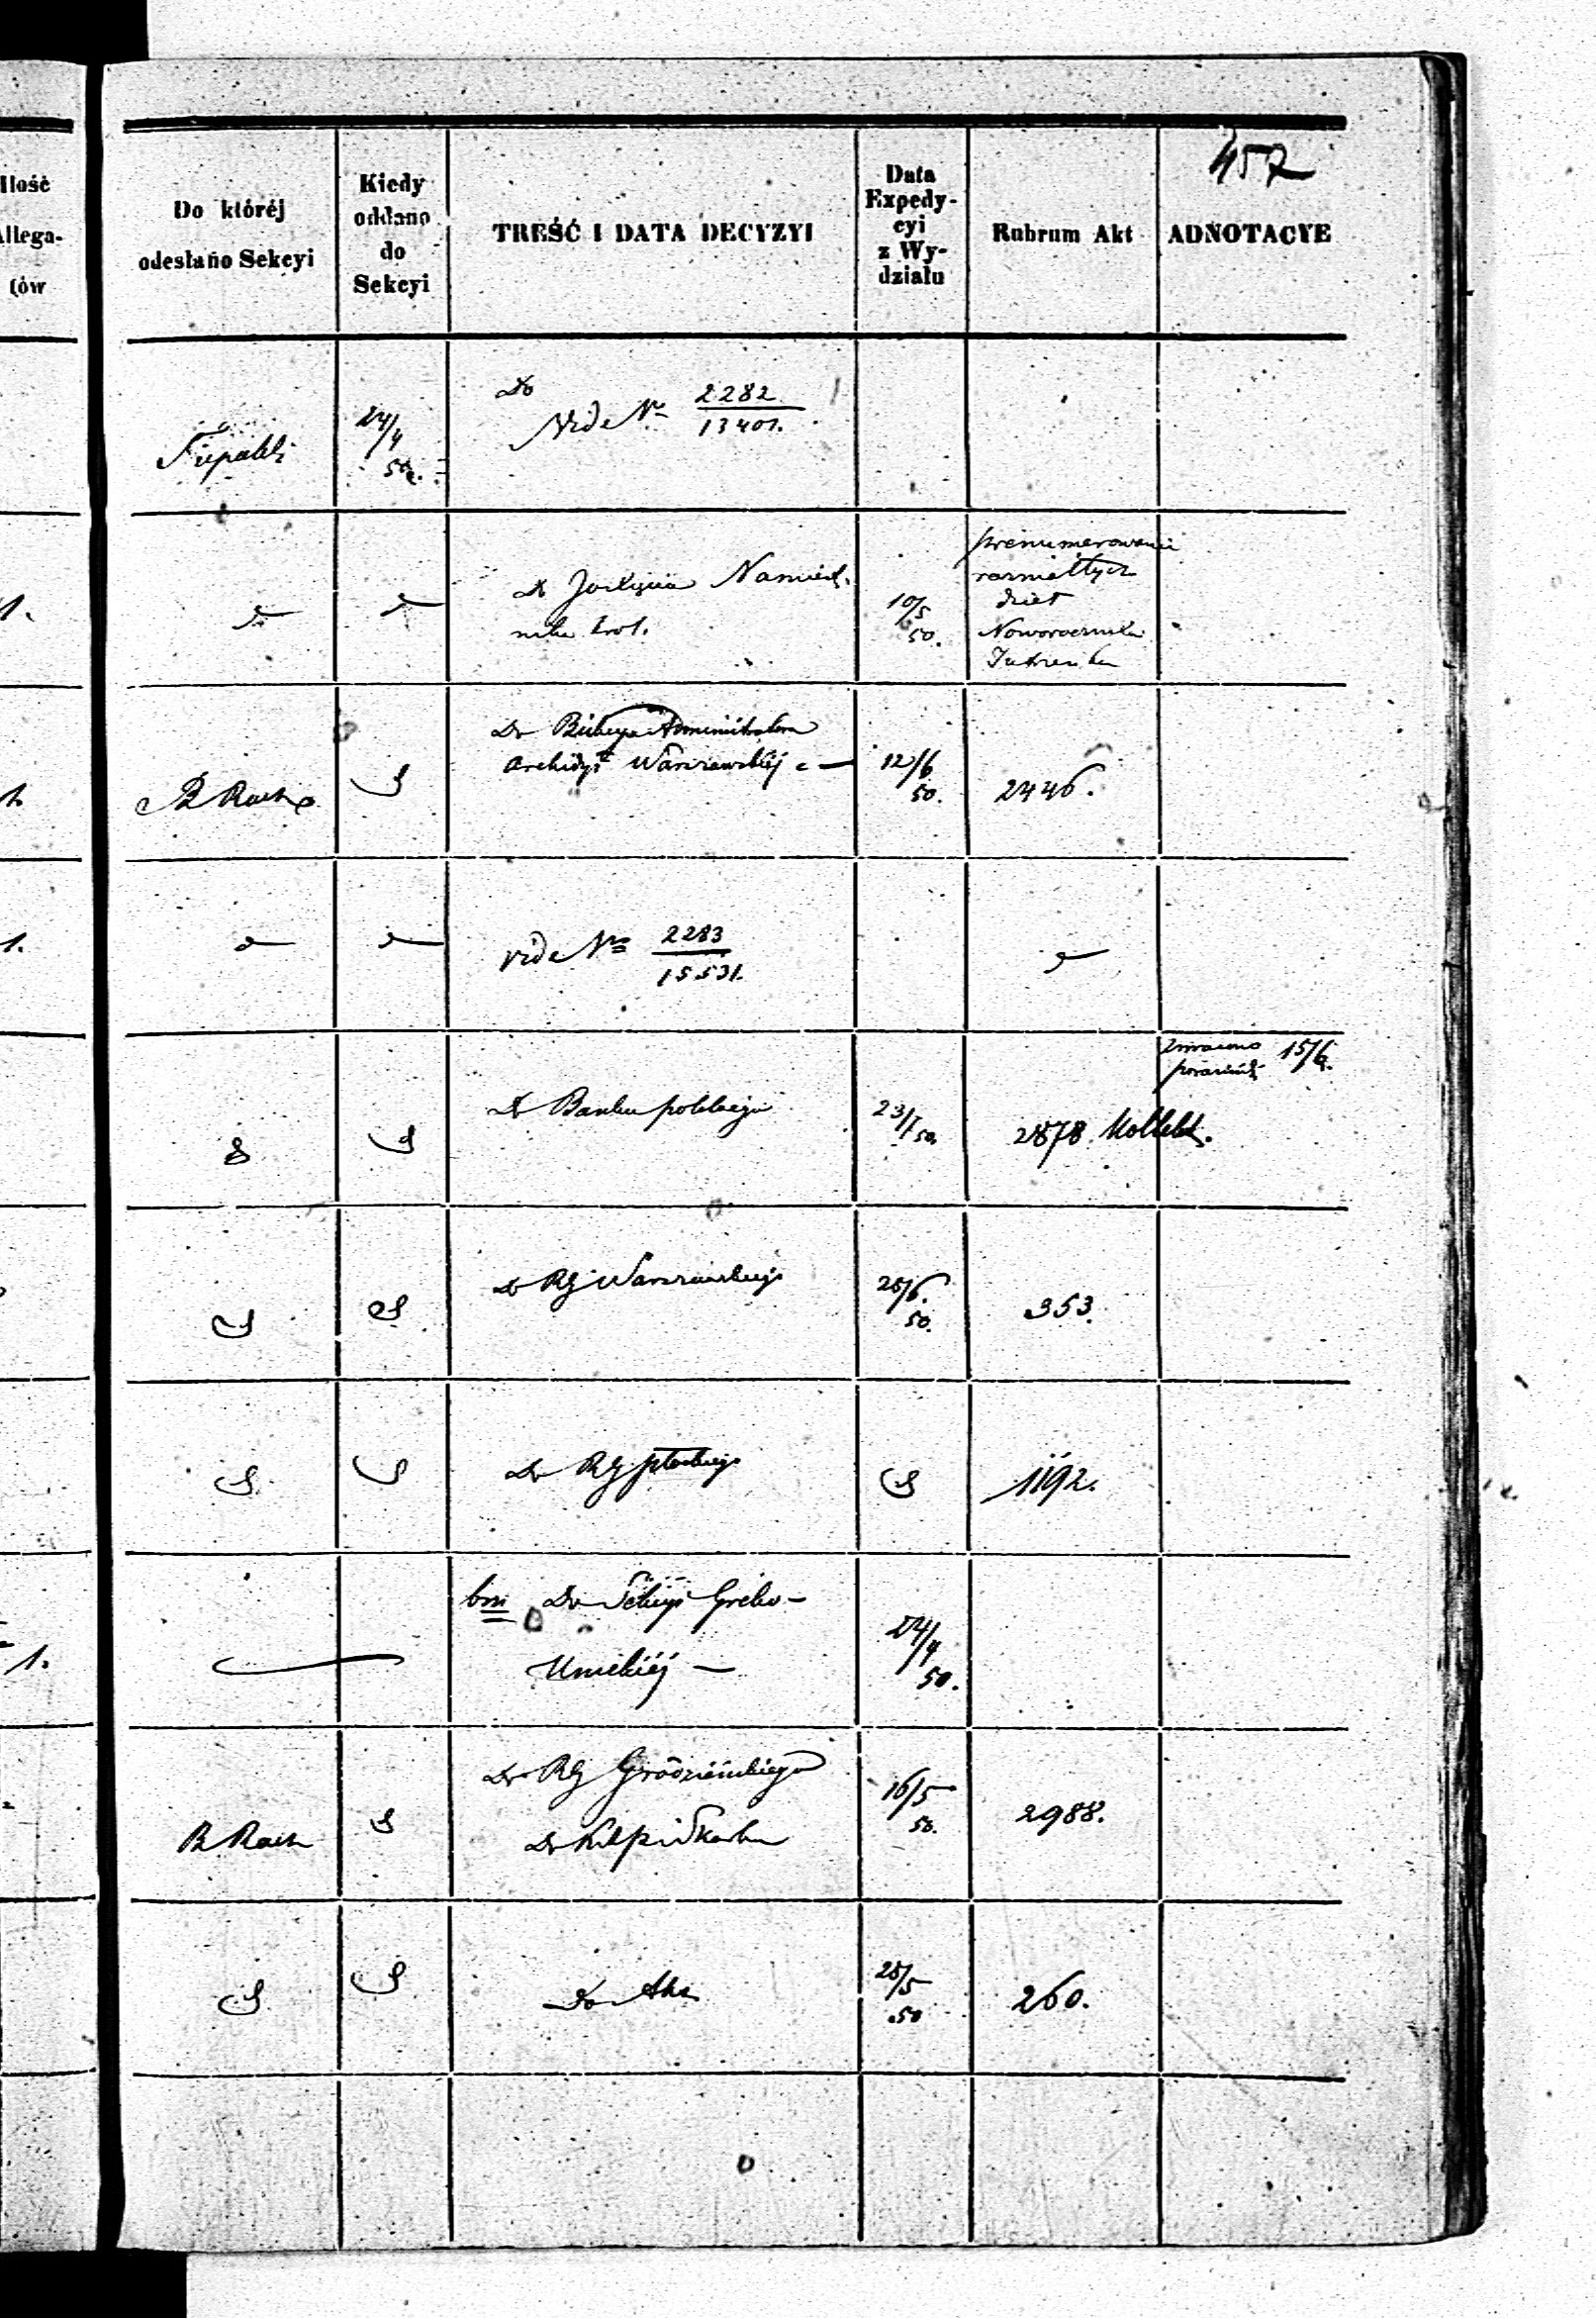 457
Ilość
Allega-
tów
Do któréj
odesłano Sekcyi
Kiedy
oddano
do
Sekcyi
TREŚĆ I DATA DECYZYI
Data
Expedy-
cyi
z Wy-
działu
Rubrum Akt
ADNOTACYE
24/4
50
Do
Vide Nr 2282
13401.
1.
Namiest-
nika Król.
10/5
50.
prenumerowanie
rozmaitych
dzieł
Noworocznika
Jutrzenka
1.
B Rach
Do Biskupa Administratora
Archidyi Warszawskiéj
12/6
50.
2446.
1.
vide Nro 2283
15531.
Do Banku polskiego
23/7 50
2878 Kollekt.
Zwrócono 15/6
Do RG Warszawskiego
25/6.
50.
353.
Do RG płockiego
1192.
1.
bm Do Sekcyi Greko-
Unickiéj —
24/4
50.
B Rach
Do RG
16/5
50.
2988.
Do Akt
25/5
50
260.